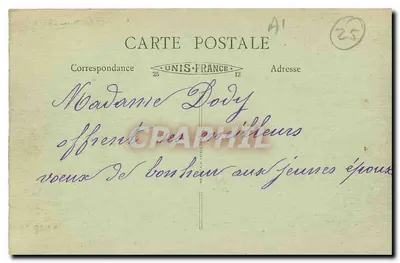 A1
25
CARTE POSTALE
Correspondance
25 UNIS-FRANCE 12
Adresse
Madame Dody
offrent ses meilleurs
CPAPHIL
voeux de bonheur aux jeunes époux